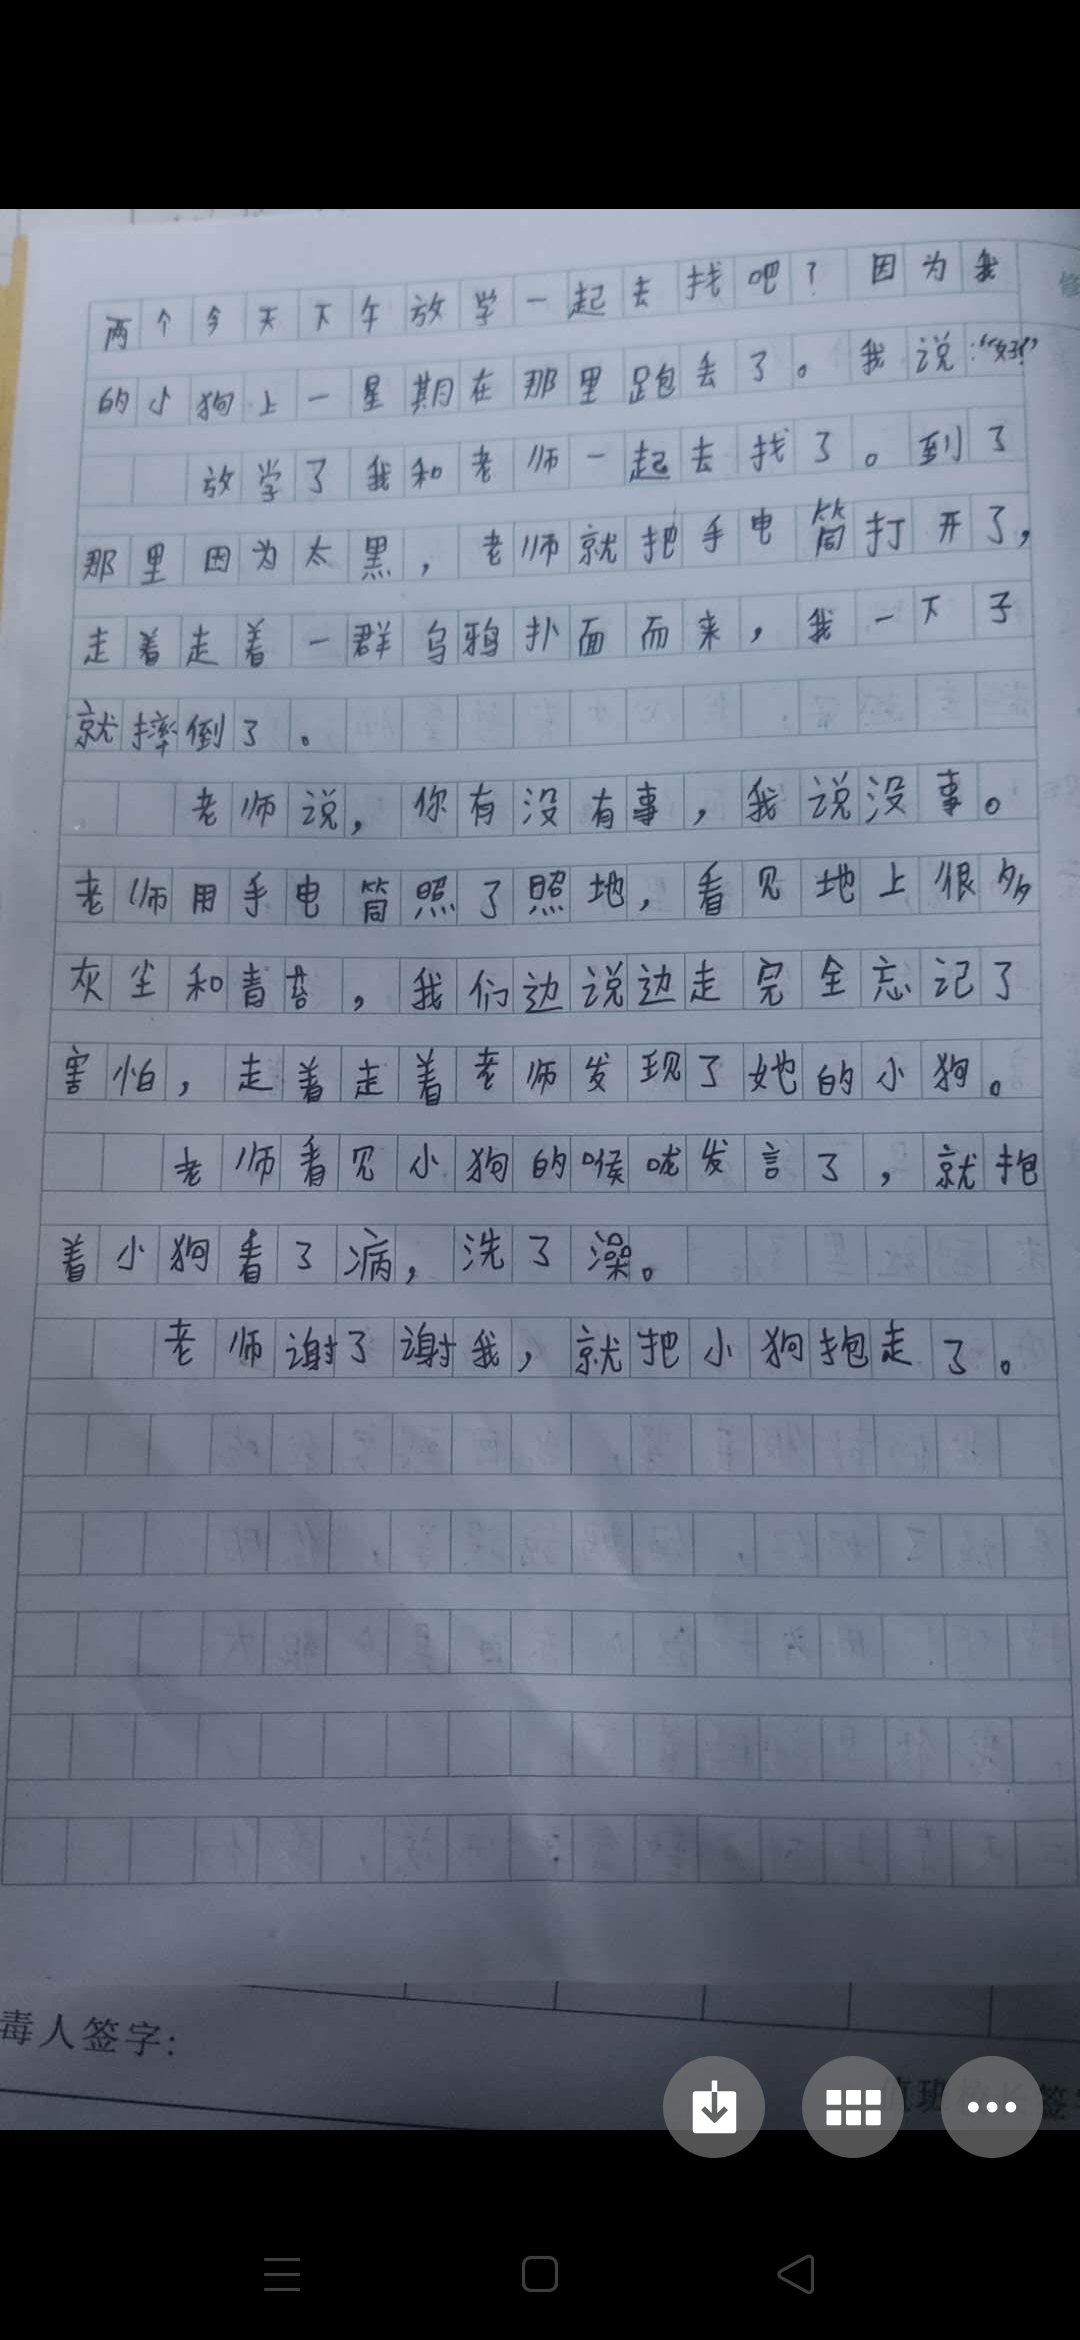 两个今天下午放学一起去找吧？因为我
的小狗上一星期在那里跑丢了。我说：“好！”
放学了我和老师一起去找了。到了
那里因为太黑，老师就把手电筒打开了，
走着走着一群乌鸦扑面而来，我一下子
就摔倒了。
老师说，你有没有事，我说没事。
老师用手电筒照了照地，看见地上很多
灰尘和青苔，我们边说边走完全忘记了
害怕，走着走着老师发现了她的小狗。
老师看见小狗的喉咙发言了，就抱
着小狗看了病，洗了澡。
老师谢了谢我，就把小狗抱走了。
毒人签字：
值班
签